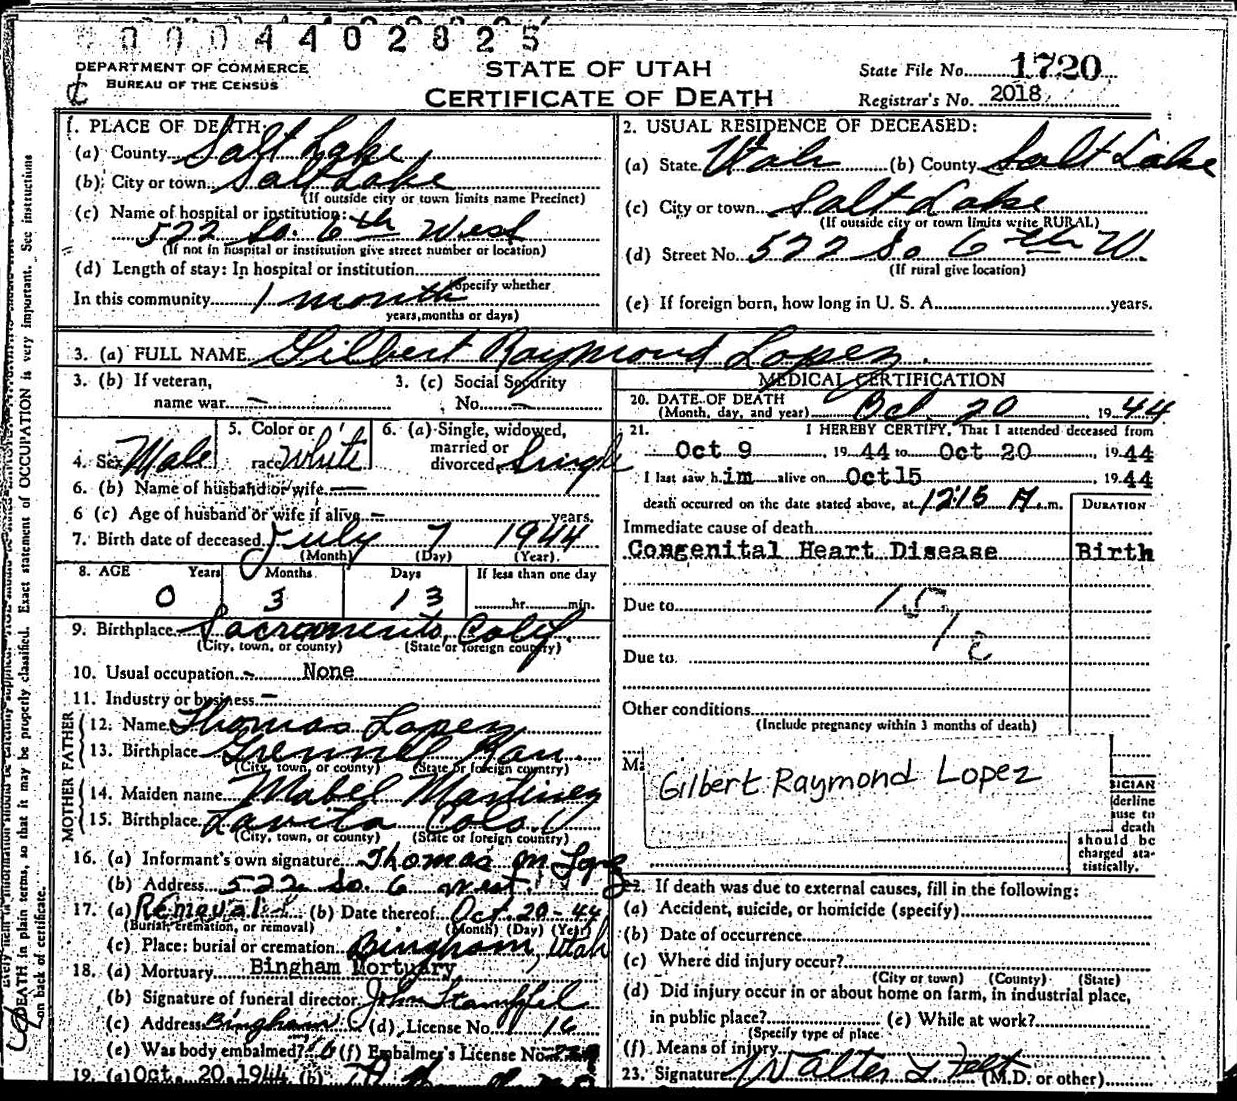 0 0 0 4 4 0 2 8 2 5
DEPARTMENT OF COMMERCE
BUREAU OF THE CENSUS
STATE OF UTAH
CERTIFICATE OF DEATH
State File No. 1720
Registrar's No. 2018
1. PLACE OF DEATH:
(a) County Salt Lake
(b) City or town Salt Lake
(If outside city or town limits name Precinct)
(c) Name of hospital or institution:
522 So. 6th West
(If not in hospital or institution give street number or location)
(d) Length of stay: In hospital or institution
(Specify whether
In this community 1 month
years, months or days)
2. USUAL RESIDENCE OF DECEASED:
(a) State Utah (b) County Salt Lake
(c) City or town Salt Lake
(If outside city or town limits write RURAL)
(d) Street No. 522 So 6th W.
(If rural give location)
(e) If foreign born, how long in U. S. A. years.
3. (a) FULL NAME Gilbert Raymond Lopez
3. (b) If veteran, name war — 3. (c) Social Security No. —
4. Sex Male 5. Color or race White 6. (a) Single, widowed, married or divorced Single
6. (b) Name of husband or wife —
6 (c) Age of husband or wife if alive — years.
7. Birth date of deceased July 7 1944
(Month) (Day) (Year)
8. AGE Years Months Days If less than one day
0 3 13 hr. min.
9. Birthplace Sacramento, Calif.
(City, town, or county) (State or foreign country)
10. Usual occupation - None
11. Industry or business —
FATHER
12. Name Thomas Lopez
13. Birthplace Kan.
(City, town, or county) (State or foreign country)
MOTHER
14. Maiden name Mabel Martinez
15. Birthplace Colo.
(City, town, or county) (State or foreign country)
16. (a) Informant's own signature Thomas M Lopez
(b) Address 522 So. 6 West
17. (a) Removal (b) Date thereof Oct. 20-44
(Burial, cremation, or removal) (Month) (Day) (Year)
(c) Place: burial or cremation Bingham, Utah
18. (a) Mortuary Bingham Mortuary
(b) Signature of funeral director John
(c) Address Bingham (d) License No. 16
(e) Was body embalmed? (f) Embalmer's License No.
19. (a) Oct. 20, 1944 (b)
MEDICAL CERTIFICATION
20. DATE OF DEATH
(Month, day, and year) Oct. 20, 1944
21. I HEREBY CERTIFY, That I attended deceased from
Oct 9 1944 to Oct 20 1944
I last saw him alive on Oct 15 1944
death occurred on the date stated above, at 12:15 A.m. DURATION
Immediate cause of death
Congenital Heart Disease Birth
Due to 157
Due to
Other conditions
(Include pregnancy within 3 months of death)
Gilbert Raymond Lopez
death
should be
charged sta-
tistically.
22. If death was due to external causes, fill in the following:
(a) Accident, suicide, or homicide (specify)
(b) Date of occurrence
(c) Where did injury occur?
(City or town) (County) (State)
(d) Did injury occur in or about home on farm, in industrial place,
in public place? (e) While at work?
(Specify type of place
(f) Means of injury
23. Signature Walter (M.D. or other)
DEATH in plain terms, so that it may be properly classified. Exact statement of OCCUPATION is very important. See instructions
on back of certificate.